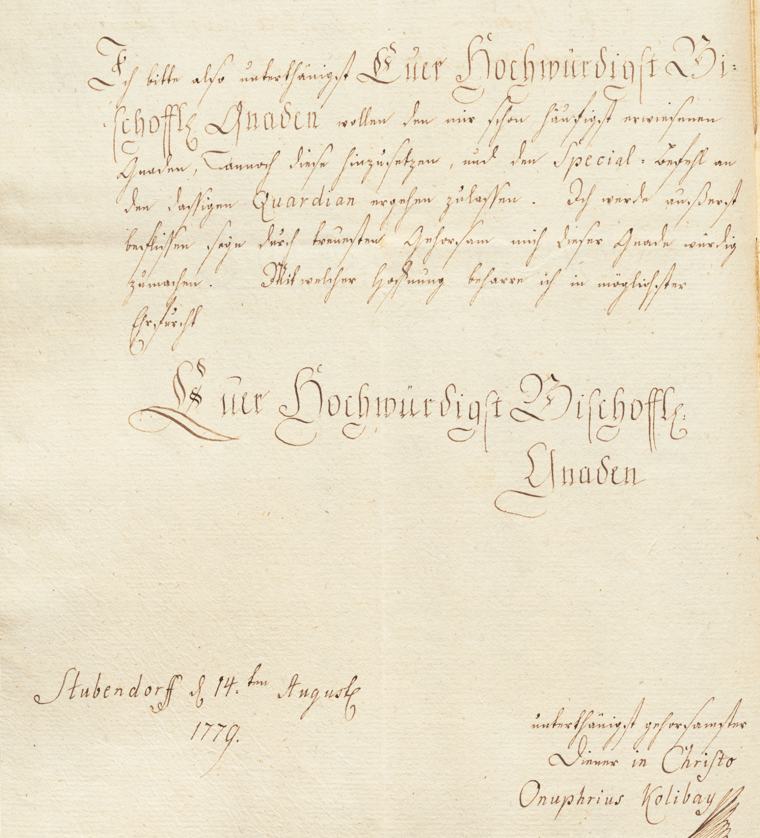 Ich bitte also unterthänigst Euer Hochwürdigst Bi-
schoffl. Gnaden wollen den mir schon häufigst erwiesenen
Gnaden, dannoch diese hinzusetzen, und den Special-Befehl an
den dasigen Quardian ergehen zulassen. Ich werde äußerst
beflissen seyn durch treuesten Gehorsam mich dieser Gnade würdig
zumachen. Mit welcher Hofnung beharre ich in möglichster
Ehrfurcht
Euer Hochwürdigst Bischoffl.
Gnaden
Stubendorff d 14.ten August
1779.
unterthänigst gehorsamster
Diener in Christo
Onuphrius Kolibay